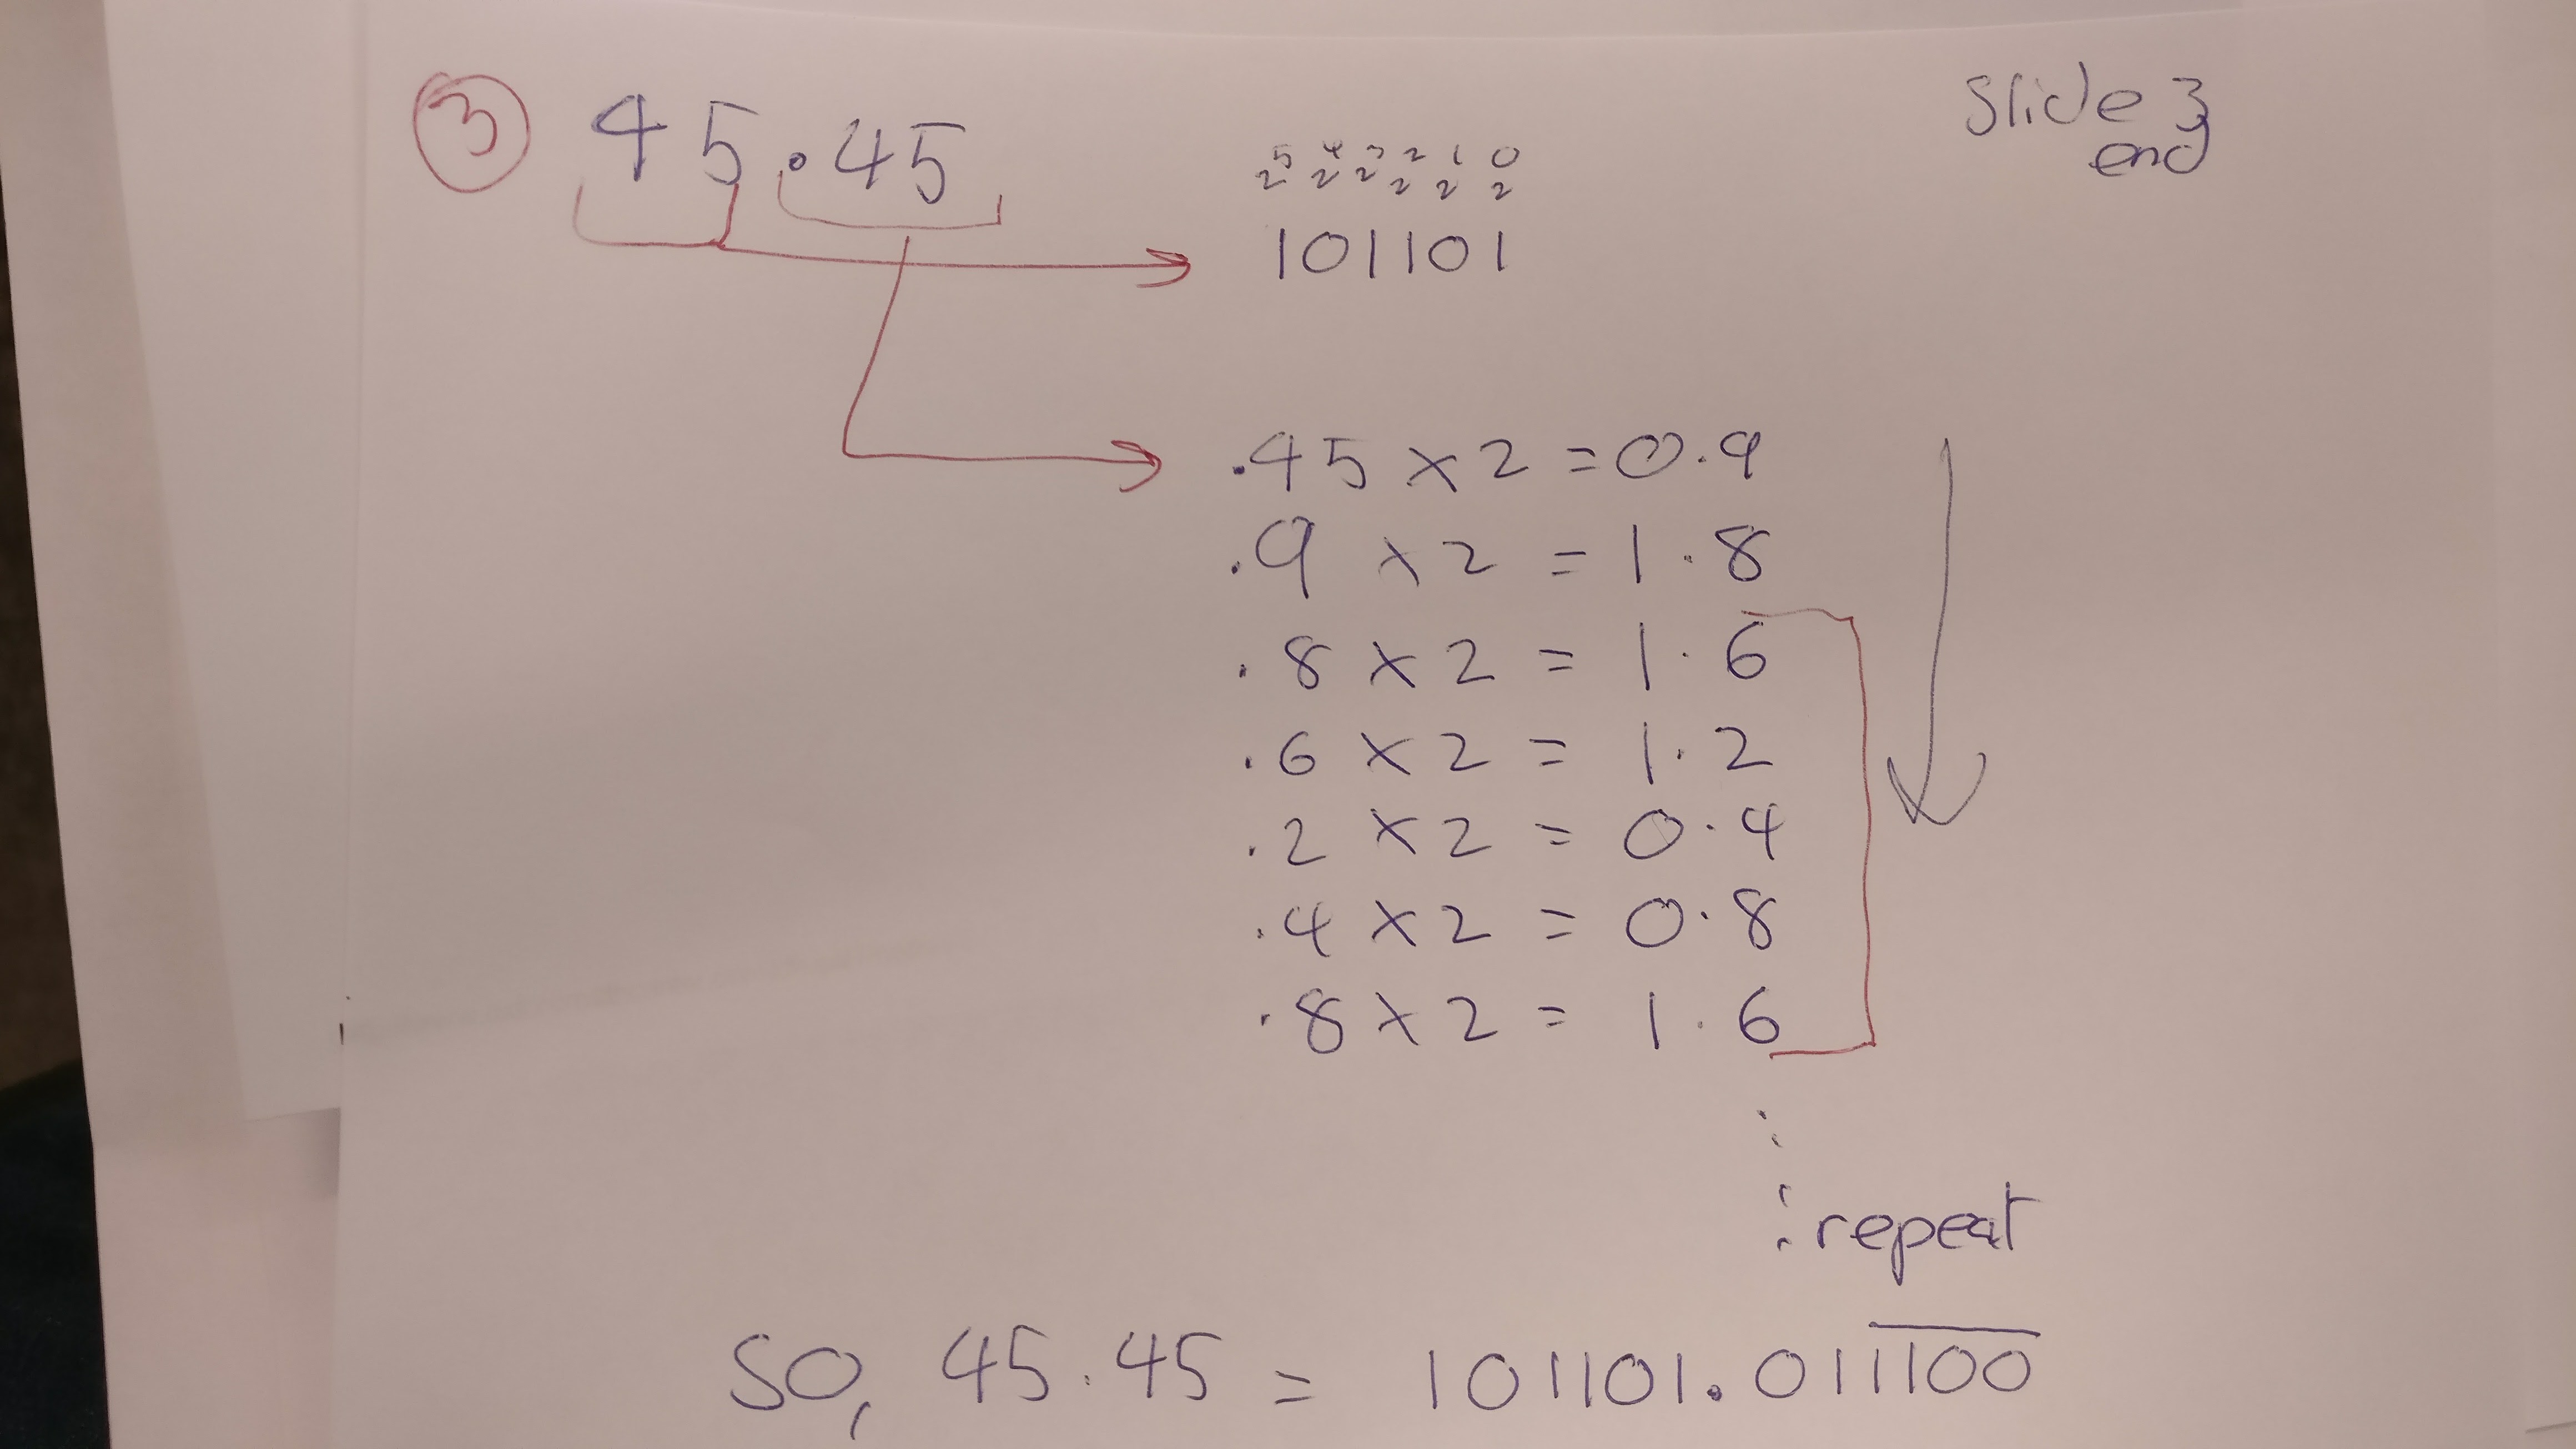 ③ 45.45
slide 3
end
2⁵ 2⁴ 2³ 2² 2¹ 2⁰
101101
.45 × 2 = 0.9
.9 × 2 = 1.8
.8 × 2 = 1.6
.6 × 2 = 1.2
.2 × 2 = 0.4
.4 × 2 = 0.8
.8 × 2 = 1.6
⋮
⋮ repeat
SO, 45.45 = 101101.011̅1̅0̅0̅